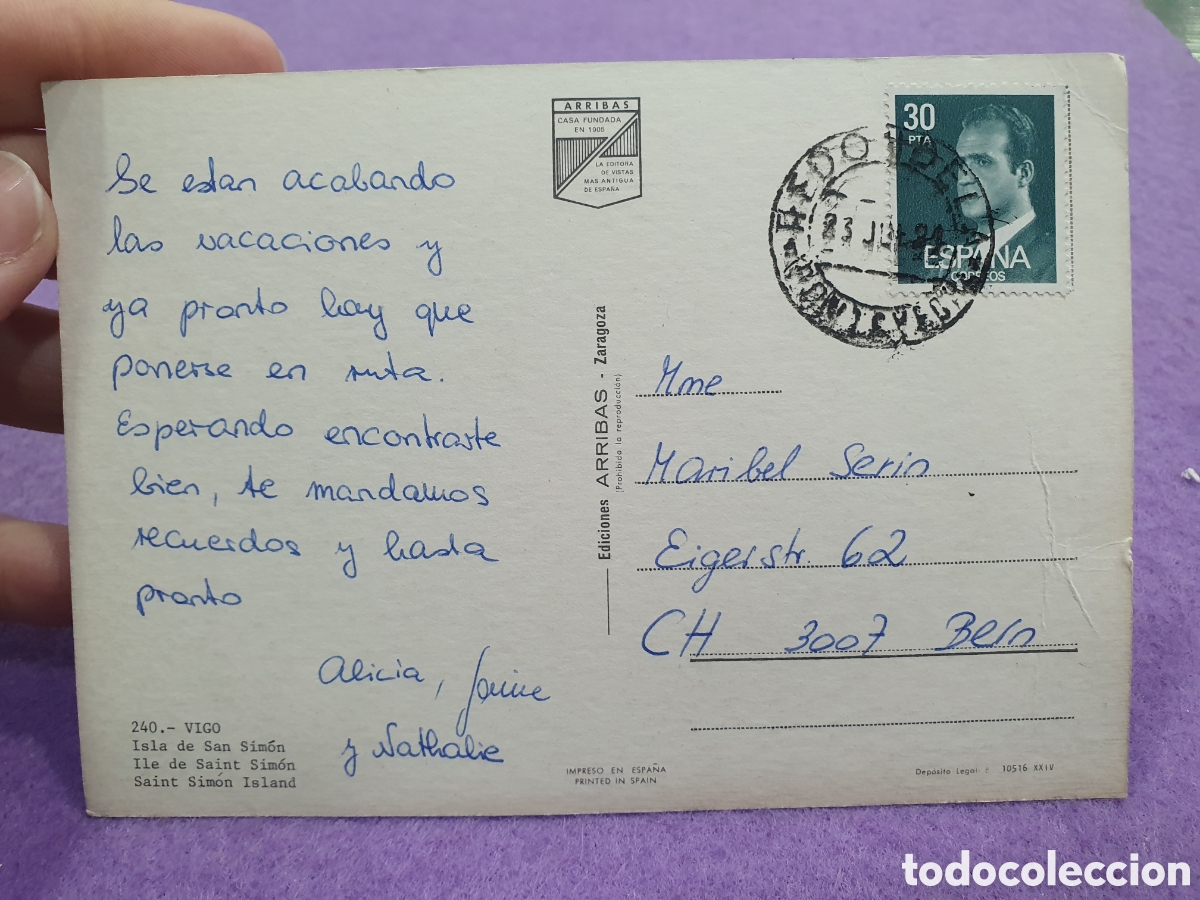 Se estan acabando
las vacaciones y
ya pronto hay que
ponerse en ruta.
Esperando encontrarte
bien, te mandamos
recuerdos y hasta
pronto
Alicia, Jaime
y Nathalie
240.- VIGO
Isla de San Simón
Ile de Saint Simón
Saint Simón Island
ARRIBAS
CASA FUNDADA
EN 1905
LA EDITORA
DE VISTAS
MAS ANTIGUA
DE ESPAÑA
Ediciones ARRIBAS - Zaragoza
(Prohibida la reproducción)
IMPRESO EN ESPAÑA
PRINTED IN SPAIN
30
PTA
ESPAÑA
CORREOS
REDONDELA
PONTEVEDRA
Mme
Maribel Serin
Eigerstr. 62
CH 3007 Bern
Depósito Legal : 10516 XXIV
todocoleccion